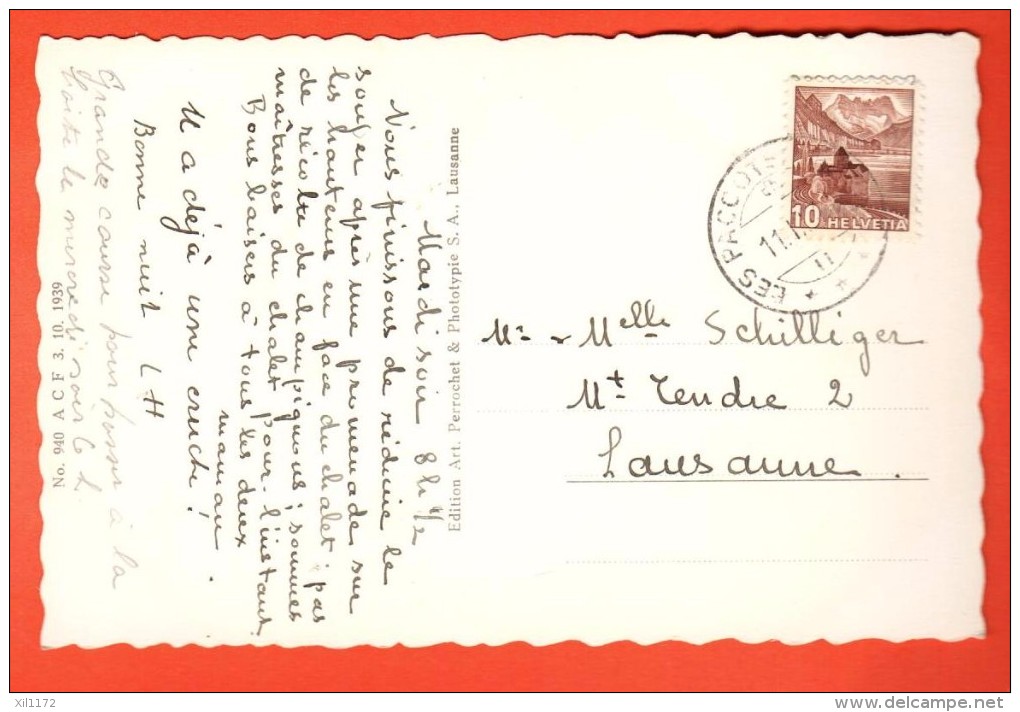 Mardi soir 8h 1/2
Nous finissons de réduire le
souper après une promenade sur
les hauteurs en face du chalet; pas
de récolte de champignons; sommes
maîtresses du chalet pour l'instant.
Bons baisers à tous les deux
maman.
Il a déjà une cruche!
Bonne nuit LH
Grande course pour passer à la
boîte le mercredi soir 6 h.
No. 940 A C F 3. 10. 1939
Edition Art. Perrochet & Phototypie S. A., Lausanne
LES PACCOTS
11.
10 HELVETIA
Mr & Melle Schilliger
Mt Tendre 2
Lausanne.
xil1172
delcampe.net